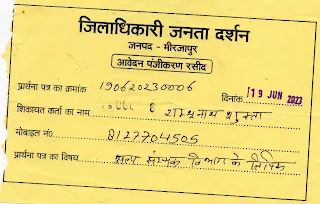 जिलाधिकारी जनता दर्शन
जनपद - मीरजापुर
आवेदन पंजीकरण रसीद
प्रार्थना पत्र का क्रमांक 190620230006 दिनांक 19 JUN 2023
शिकायत कर्ता का नाम शम्भूनाथ शुक्ला
मोबाइल नं0. 8127704505
प्रार्थना पत्र का विषय विभाग के